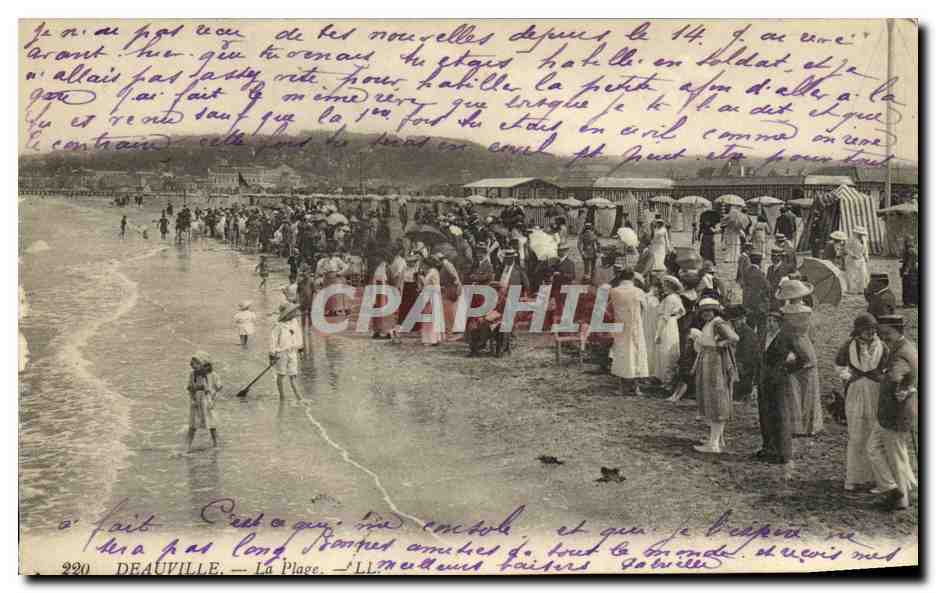 je n'ai pas reçu de tes nouvelles depuis le 14. J'ai rêvé
avant hier que tu venais tu étais habillé en soldat, et je
n'allais pas assez vite pour habiller la petite afin d'aller à la
gare j'ai fait le même rêve que lorsque je t'avait et que
tu es revenu sauf que la 1re fois tu étais en civil comme on rêve
le contraire cette fois tu seras en civil et peut être pour tout
CPAPHIL
à fait C'est ce qui me console et que j'espère ne
sera pas long Bonnes amitiés de tout le monde et reçois mes
220 DEAUVILLE. — La Plage. — LL.
meilleurs baisers Gabrielle